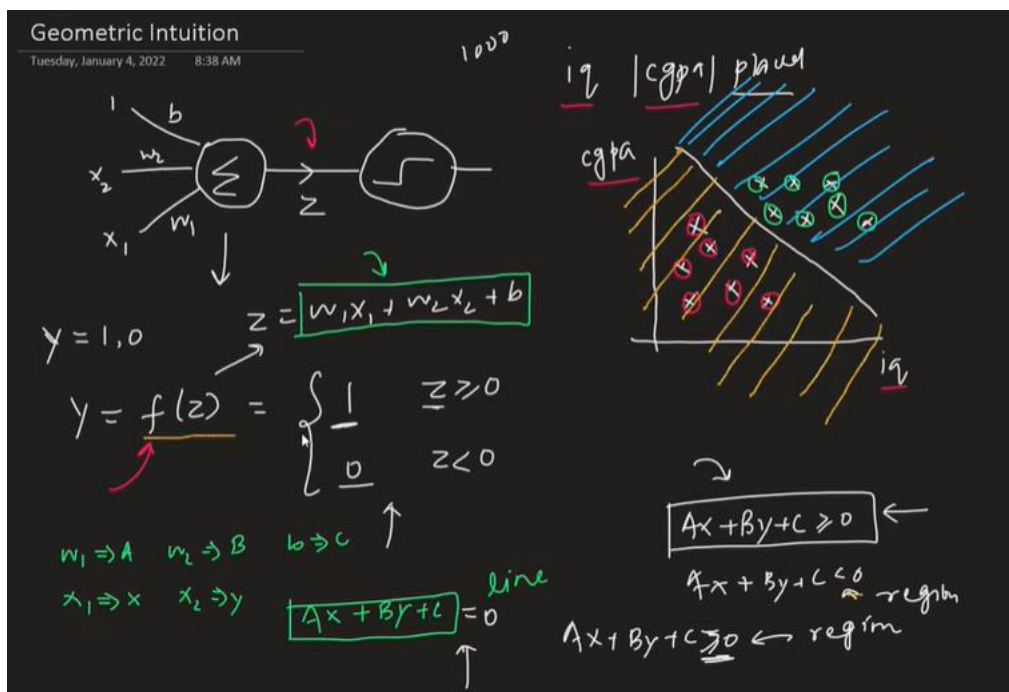 Geometric Intuition
Tuesday, January 4, 2022 8:38 AM
1000
1 b
x₂ w₂ Σ
x₁ w₁
z
z = w₁x₁ + w₂x₂ + b
y = 1, 0
y = f(z) = { 1 z ≥ 0
0 z < 0
w₁ ⇒ A w₂ ⇒ B b ⇒ C
x₁ ⇒ x x₂ ⇒ y
line
Ax + By + C = 0
iq |cgpa|
cgpa
iq
Ax + By + C ≥ 0
Ax + By + C < 0 region
Ax + By + C ≥ 0 ← region